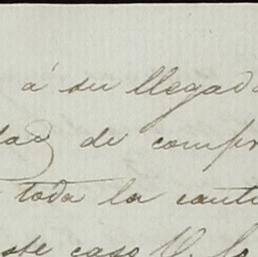 á su llegada
dad de compr
toda la canti
este caso V. lo